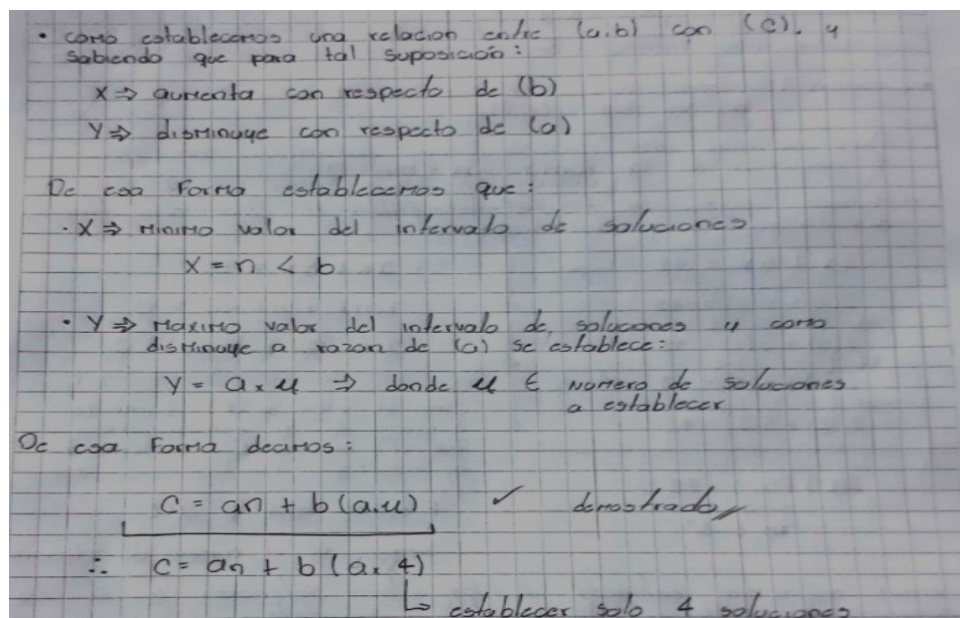 • como establecemos una relación entre (a,b) con (c). y
sabiendo que para tal suposición:
X ⇒ aumenta con respecto de (b)
Y ⇒ disminuye con respecto de (a)
De esa Forma establecemos que:
• X ⇒ minimo valor del intervalo de soluciones
X = n < b
• Y ⇒ Maximo valor del intervalo de soluciones y como
disminuye a razon de (a) se establece:
Y = a × u ⇒ donde u ∈ Numero de soluciones
a establecer
De esa Forma decimos:
C = an + b (a.u) ✓ demostrado//
∴ C = an + b (a. 4)
↳ establecer solo 4 soluciones